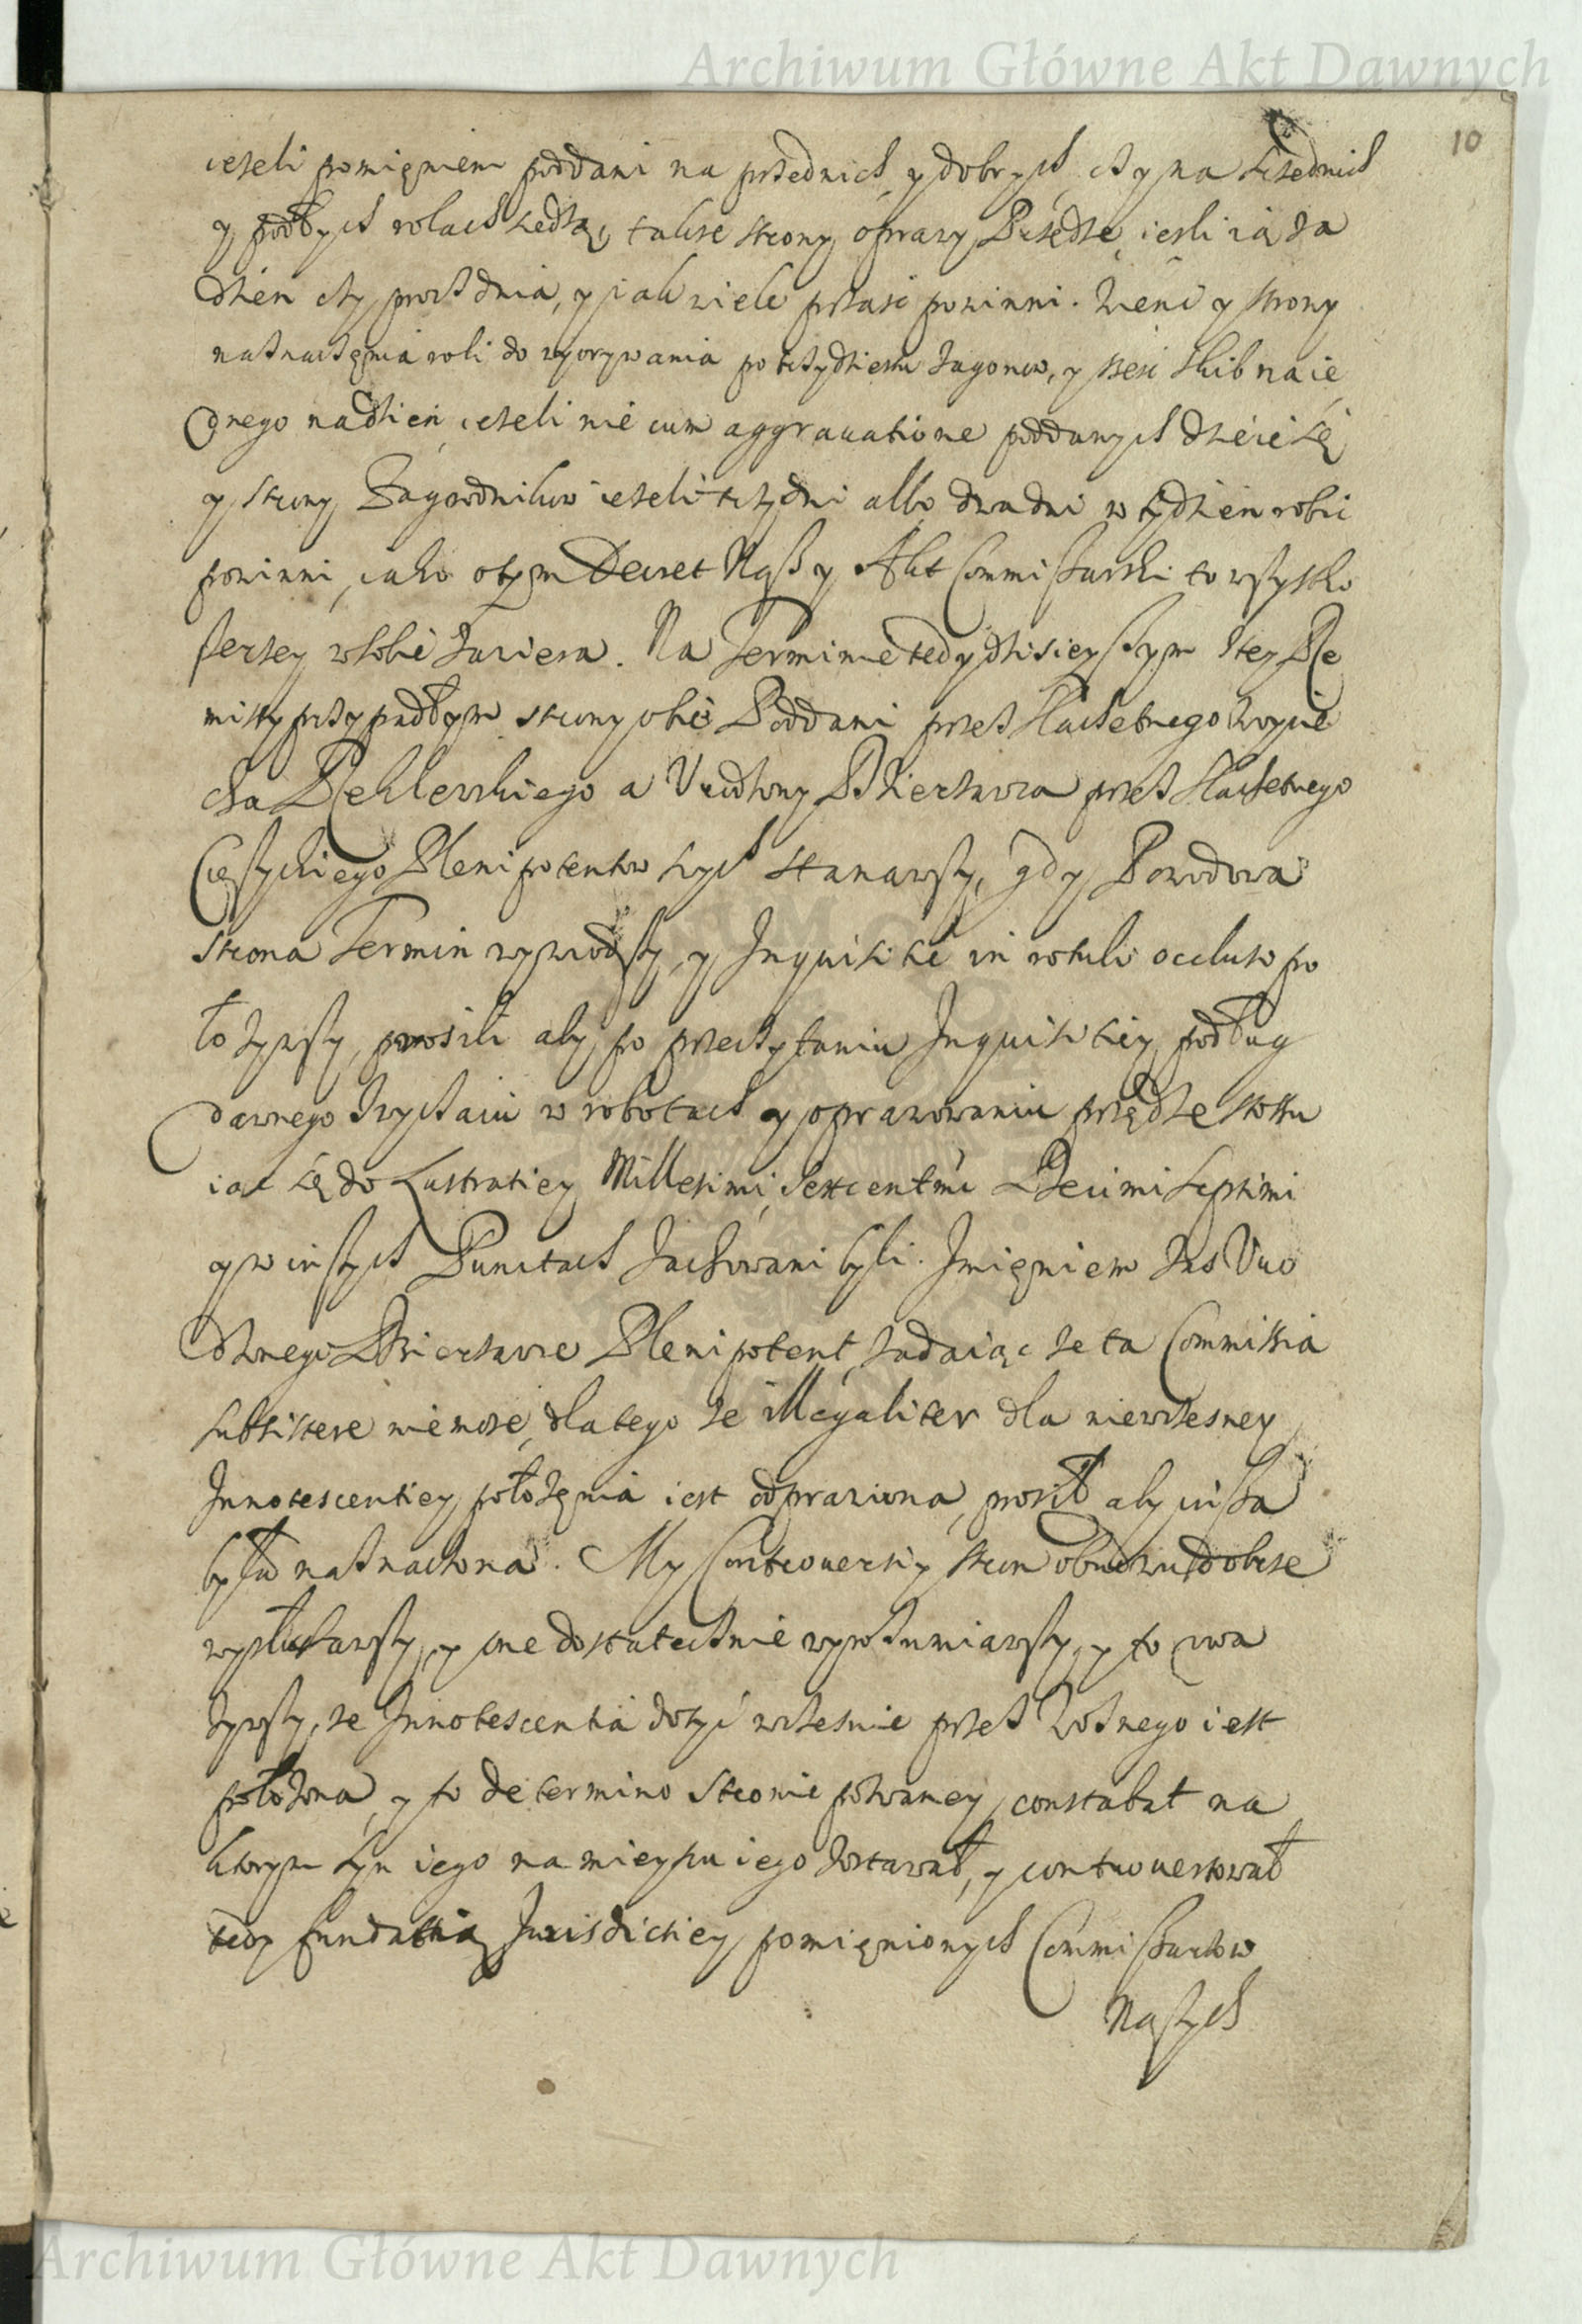 Archiwum Główne Akt Dawnych
10
ieżeli pomięnieni poddani na przednich y dobrych, czy na szrednich
y podłych rolach siedzą, także strony oprawy Przędze, iesli ią za
dzień czy prosz dnia, y iak wiele prząsć powinni. Zień y strony
naznaczęnia roli do wyorywania po trzydziestu zagonow, y szesc skib na ie
dnego na dzień, ieżeli nie cum aggrauatione poddanych dzieie się
y strony Zagrodnikow ieżeli trzy dni albo dwa dni w tydzien robic
powinni, iako o tym Decret Nasz y Akt Commissarski to wszystko
szerzey w sobie zawiera. Na Terminie tedy dzisieyszym z tey Re
missy przypadłym strony obie Poddani przez Szlachetnego Woycie
cha Reklewskiego a Vrodzony Dzierzawca przez Szlachetnego
Cięszyckiego Plenipotentow swych stanąwszy, gdy Powodowa
strona Termin wywiodszy, y Inquisitie in rotulo occluso po
łożywszy, prosili aby po przeczytaniu Inquisitiey, podług
dawnego zwyczaiu w robotach y oprawowaniu przędze stosu
iąc się do Lustratiey Millesimi, Sexcentmi Decimi Septimi
y w inszych Punctach zachowani byli. Imięniem zas Vro
dzonego Dzierzawce Plenipotent, zadaiąc że ta Commissia
subsistere nie może, dlatego że illegaliter dla niewczesney
Innotescentiey położęnia iest odprawiona, prosił aby insza
była naznaczona. My Controuersiy stron obudwu dobrze
wysłuchawszy, y one dostatecznie wyrozumiawszy, y to uwa
żywszy, że Innotescentia dosyć wczesnie przez Woznego iest
położona, y to de termino stronie pozwaney, constabat na
ktorym syn iego na mieyscu iego zostawał, y controuertował
tedy fundatią Jurisdictiey pomięnionych Commissarzow
Naszych
Archiwum Główne Akt Dawnych